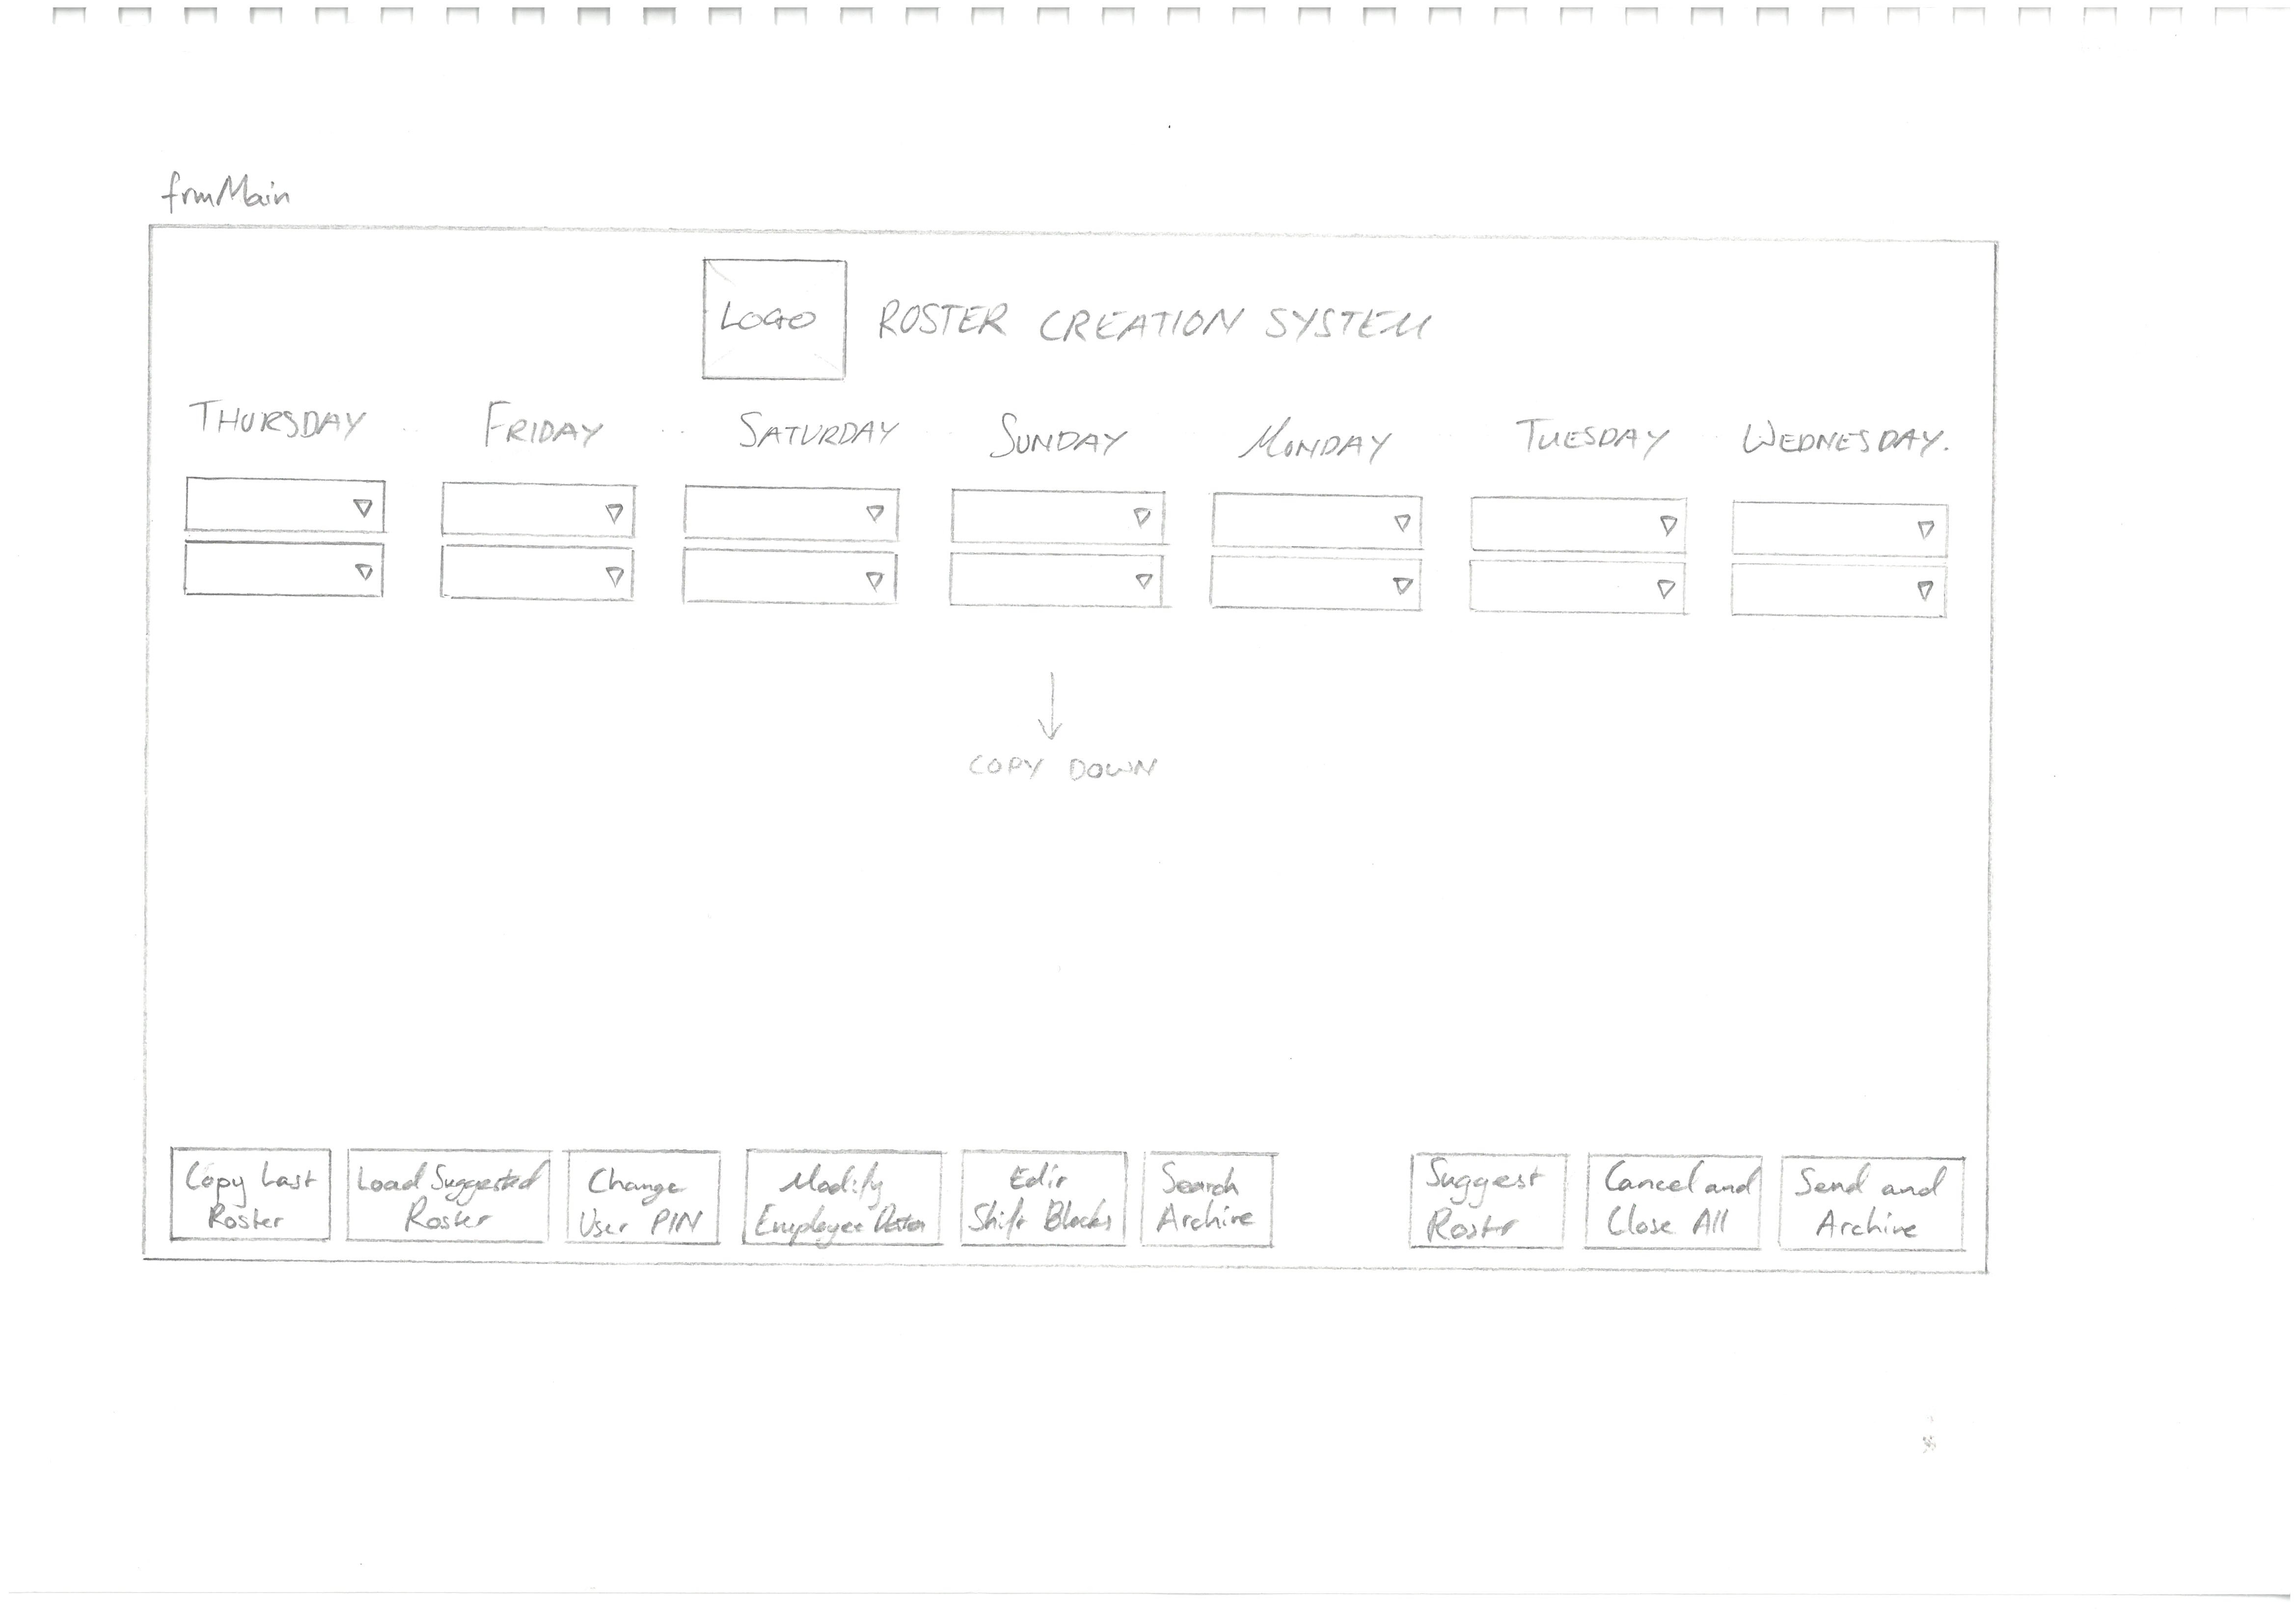 frmMain
LOGO
ROSTER CREATION SYSTEM
THURSDAY FRIDAY SATURDAY SUNDAY MONDAY TUESDAY WEDNESDAY.
COPY DOWN
Copy Last
Roster
Load Suggested
Roster
Change
User PIN
Modify
Employee Data
Edit
Shift Blocks
Search
Archive
Suggest
Roster
Cancel and
Close All
Send and
Archive